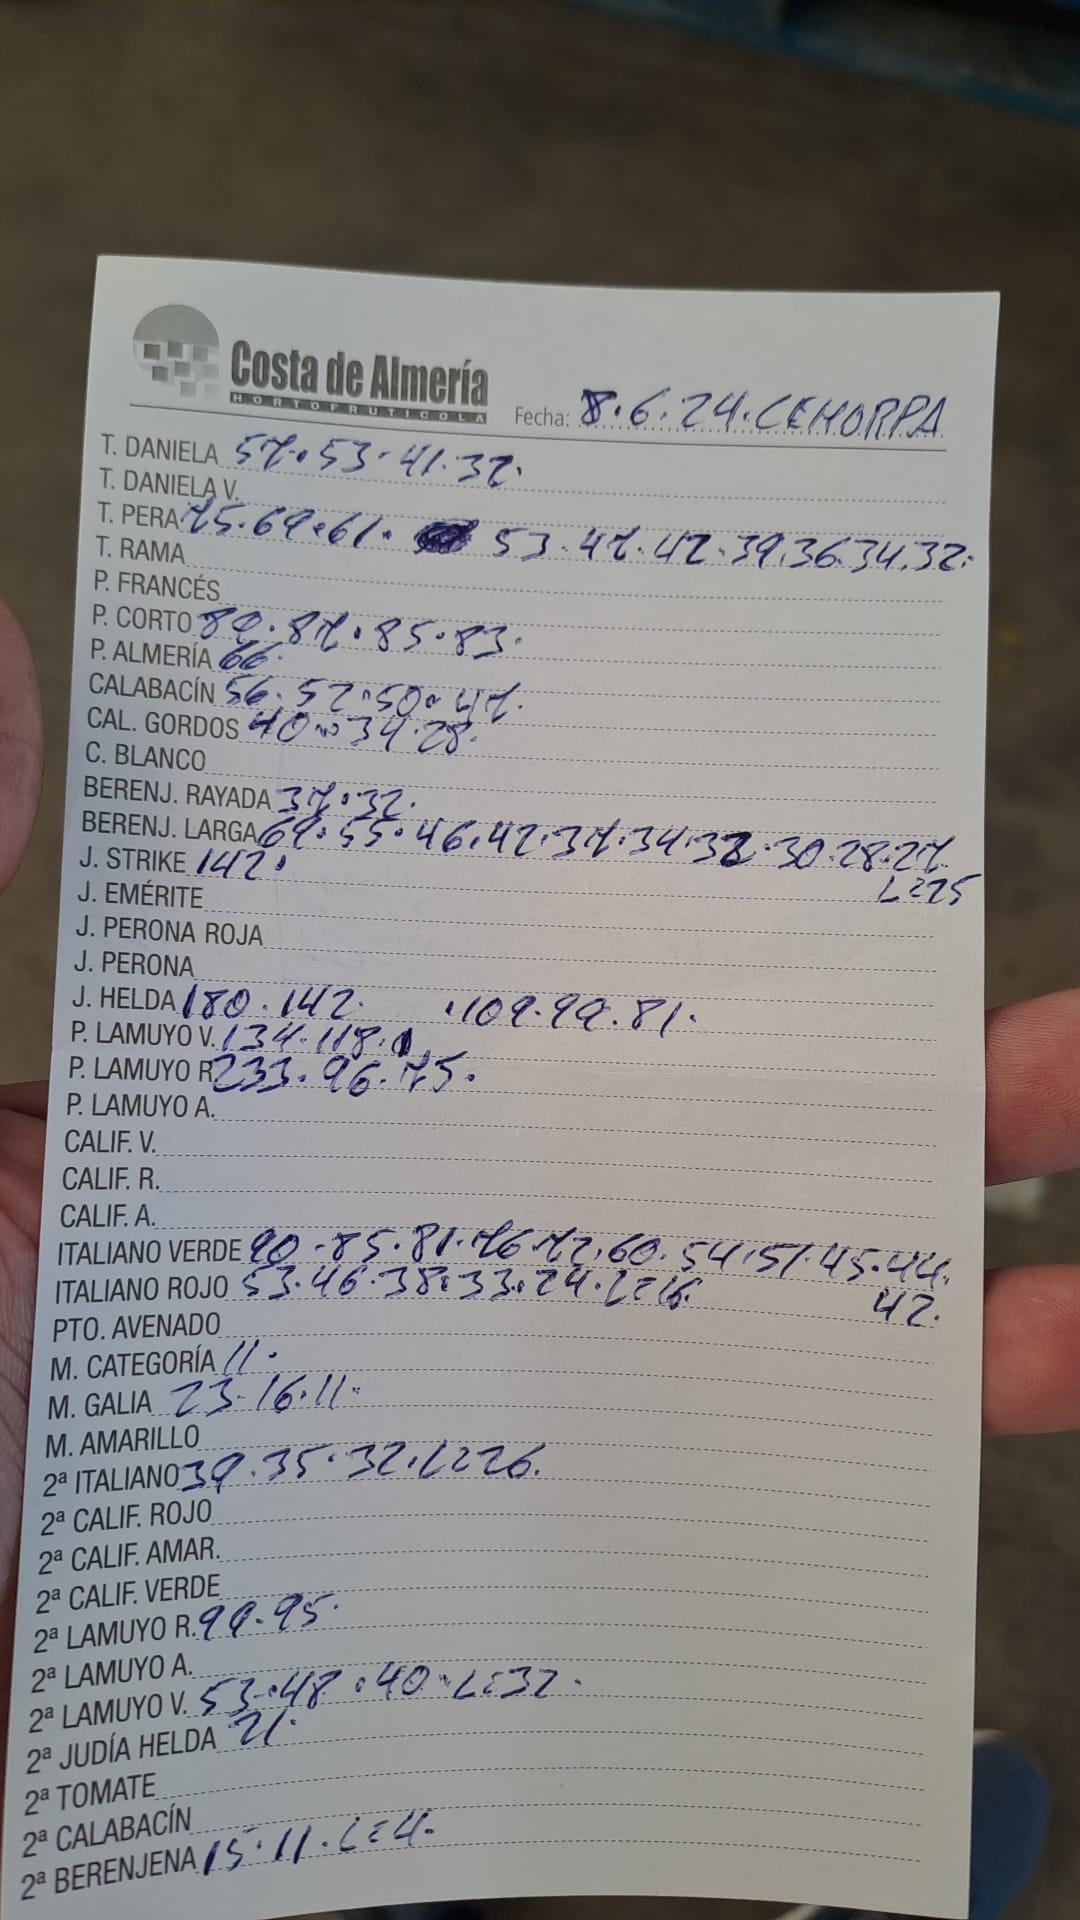 Costa de Almería
HORTOFRUTICOLA
Fecha: 8.6.24.CEHORPA
T. DANIELA 57.53.41.32.
T. DANIELA V.
T. PERA 75.69.61. 53.47.42.39.36.34.32.
T. RAMA
P. FRANCÉS
P. CORTO 89.87.85.83.
P. ALMERÍA 66.
CALABACÍN 56.52.50.47.
CAL. GORDOS 40.34.28.
C. BLANCO
BERENJ. RAYADA 37.32.
BERENJ. LARGA 69.55.46.42.37.34.32.30.28.27.
L=25
J. STRIKE 142.
J. EMÉRITE
J. PERONA ROJA
J. PERONA
J. HELDA 180.142. .109.99.81.
P. LAMUYO V. 134.118.
P. LAMUYO R 233.96.75.
P. LAMUYO A.
CALIF. V.
CALIF. R.
CALIF. A.
ITALIANO VERDE 90.85.81.76.72.60.54.51.45.44.
42.
ITALIANO ROJO 53.46.38.33.24.L=16.
PTO. AVENADO
M. CATEGORÍA 11.
M. GALIA 23.16.11.
M. AMARILLO
2ª ITALIANO 39.35.32.L=26.
2ª CALIF. ROJO
2ª CALIF. AMAR.
2ª CALIF. VERDE
2ª LAMUYO R. 99.95.
2ª LAMUYO A.
2ª LAMUYO V. 53.48.40.L=32.
2ª JUDÍA HELDA 21.
2ª TOMATE
2ª CALABACÍN
2ª BERENJENA 15.11.L=4.